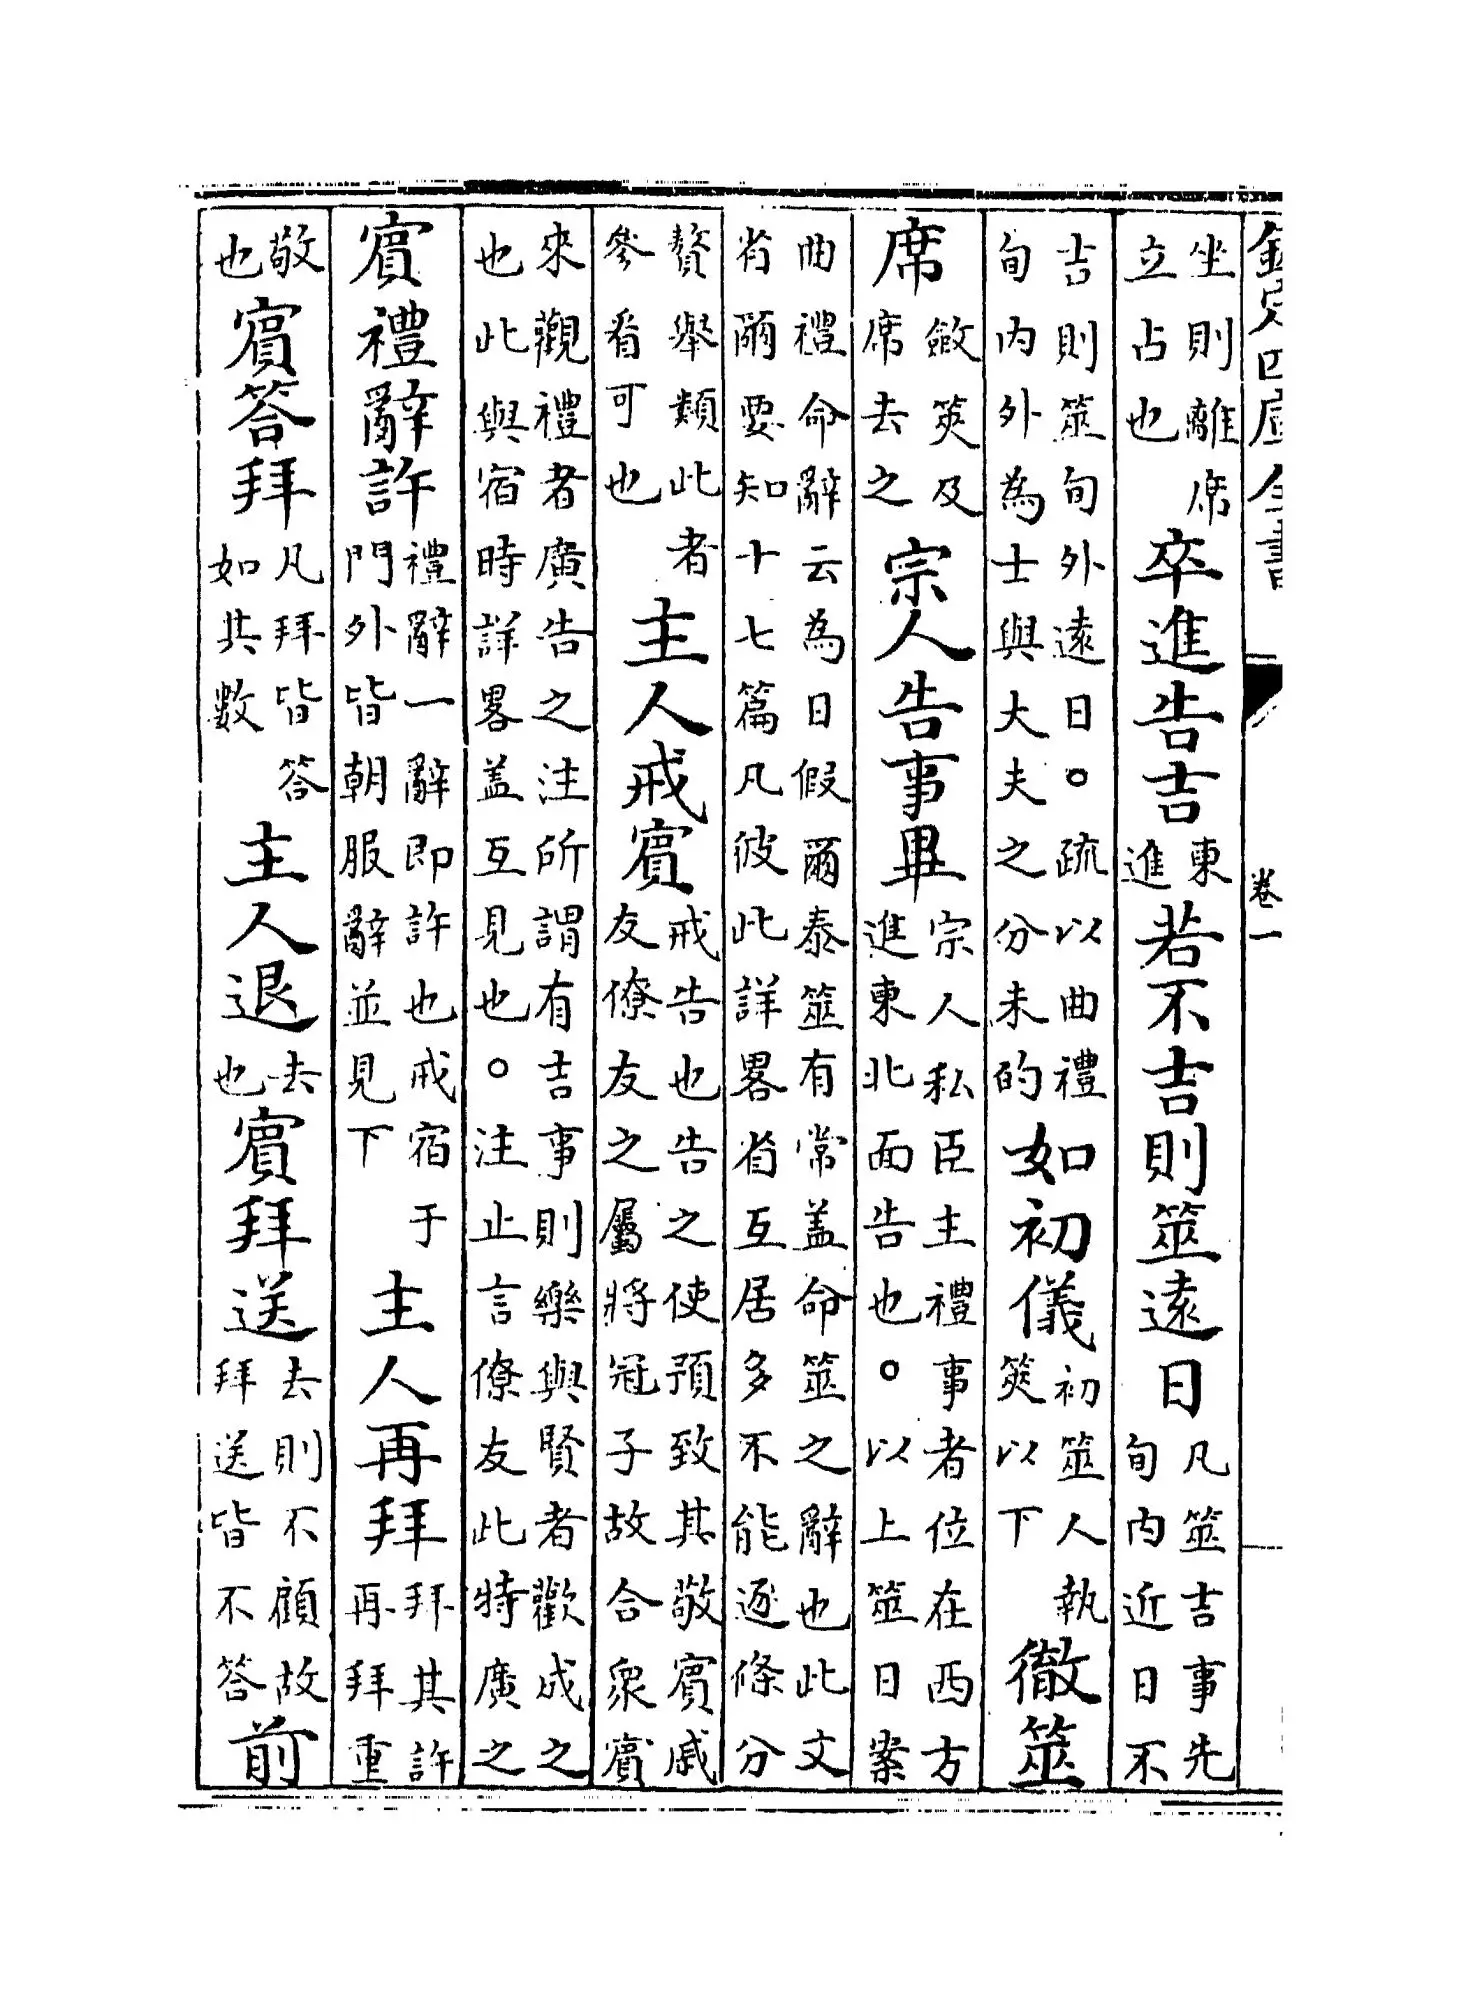 欽定四庫全書 卷一
坐則離席立占也卒進告吉東進若不吉則筮遠日凡筮吉事先旬内近日不
吉則筮旬外遠日。疏以曲禮旬内外為士與大夫之分未的如初儀初筮人執筴以下徹筮
席斂筴及席去之宗人告事畢宗人私臣主禮事者位在西方進東北面告也。以上筮日案
曲禮命辭云為日假爾泰筮有常盖命筮之辭也此文省爾要知十七篇凡彼此詳畧省互居多不能逐條分
贅舉類此者參看可也主人戒賓戒告也告之使預致其敬賓戚友僚友之屬將冠子故合衆賓
來觀禮者廣告之注所謂有吉事則樂與賢者歡成之也此與宿時詳畧盖互見也。注止言僚友此特廣之
賓禮辭許禮辭一辭即許也戒宿于門外皆朝服辭並見下主人再拜拜其許再拜重
敬也賓答拜凡拜皆答如其數主人退去也賓拜送去則不顧故拜送皆不答前